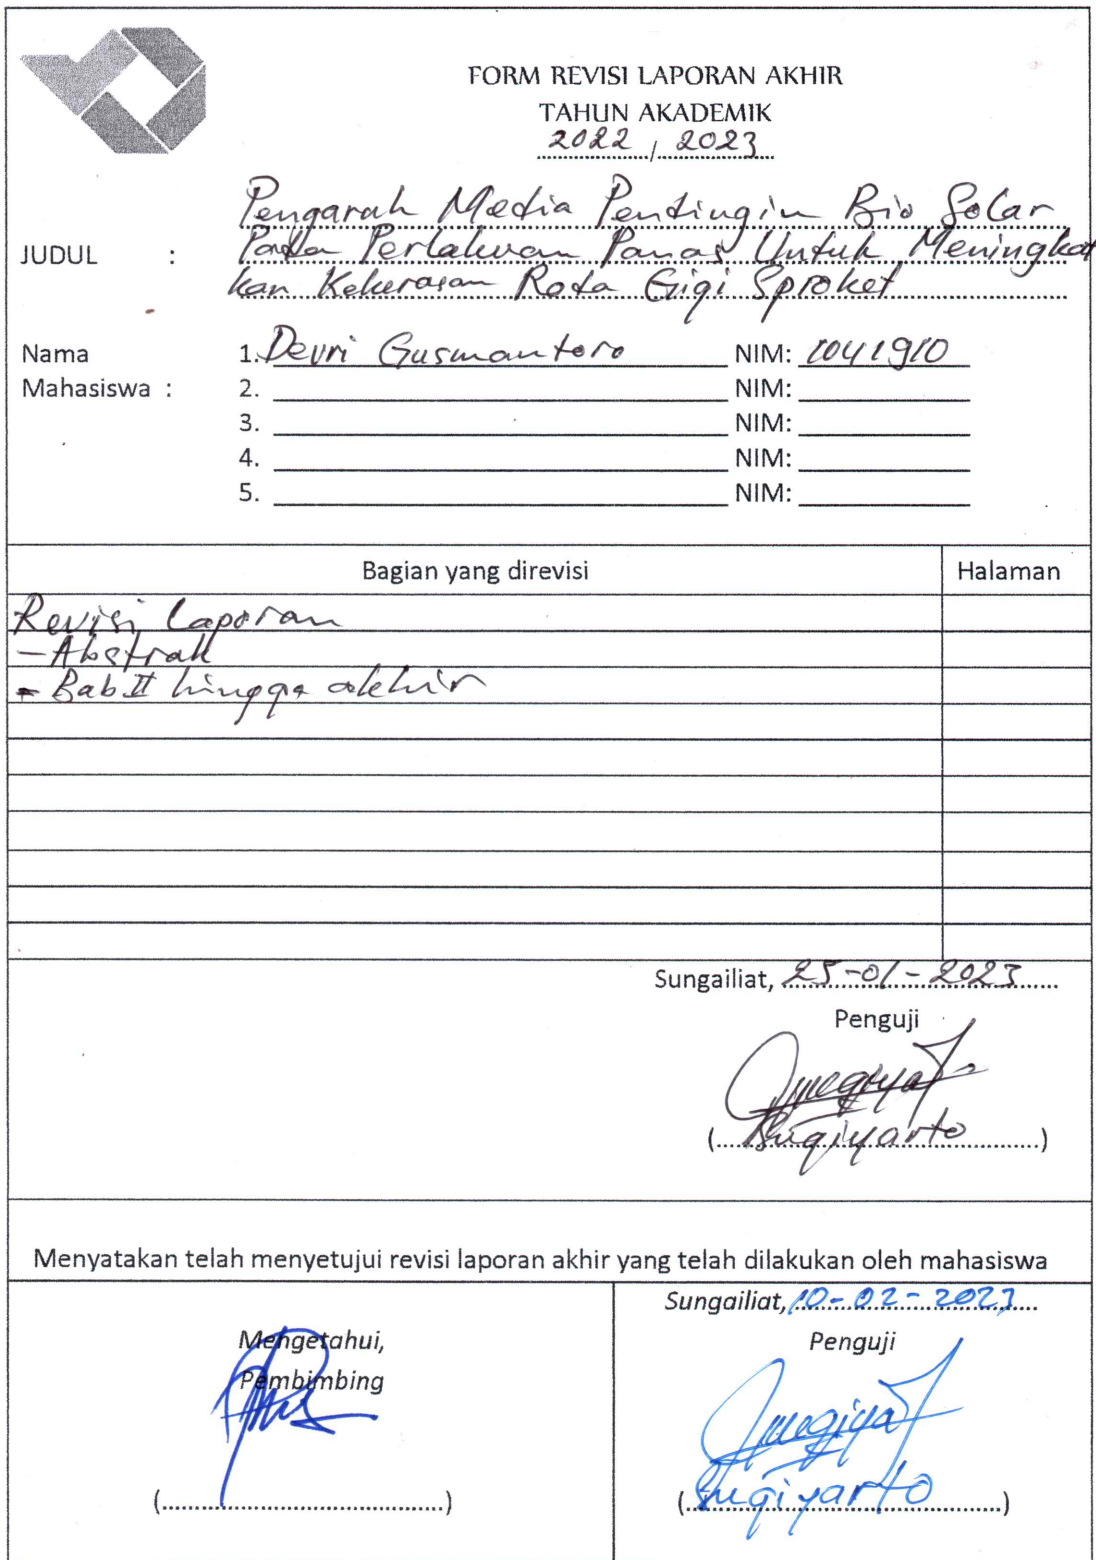 FORM REVISI LAPORAN AKHIR
TAHUN AKADEMIK
2022 / 2023
JUDUL :
Pengaruh Media Pendingin Bio Solar
Pada Perlakuan Panas Untuk Meningkat
kan Kekerasan Roda Gigi Sproket
Nama
Mahasiswa :
1. Devri Gusmantoro NIM: 1041910
2. NIM:
3. NIM:
4. NIM:
5. NIM:
Bagian yang direvisi Halaman
Revisi Laporan
- Abstrak
- Bab II hingga akhir
Sungailiat, 25-01-2023
Penguji
(Sugiyarto)
Menyatakan telah menyetujui revisi laporan akhir yang telah dilakukan oleh mahasiswa
Mengetahui,
Pembimbing
(...)
Sungailiat, 10-02-2023
Penguji
(Sugiyarto)